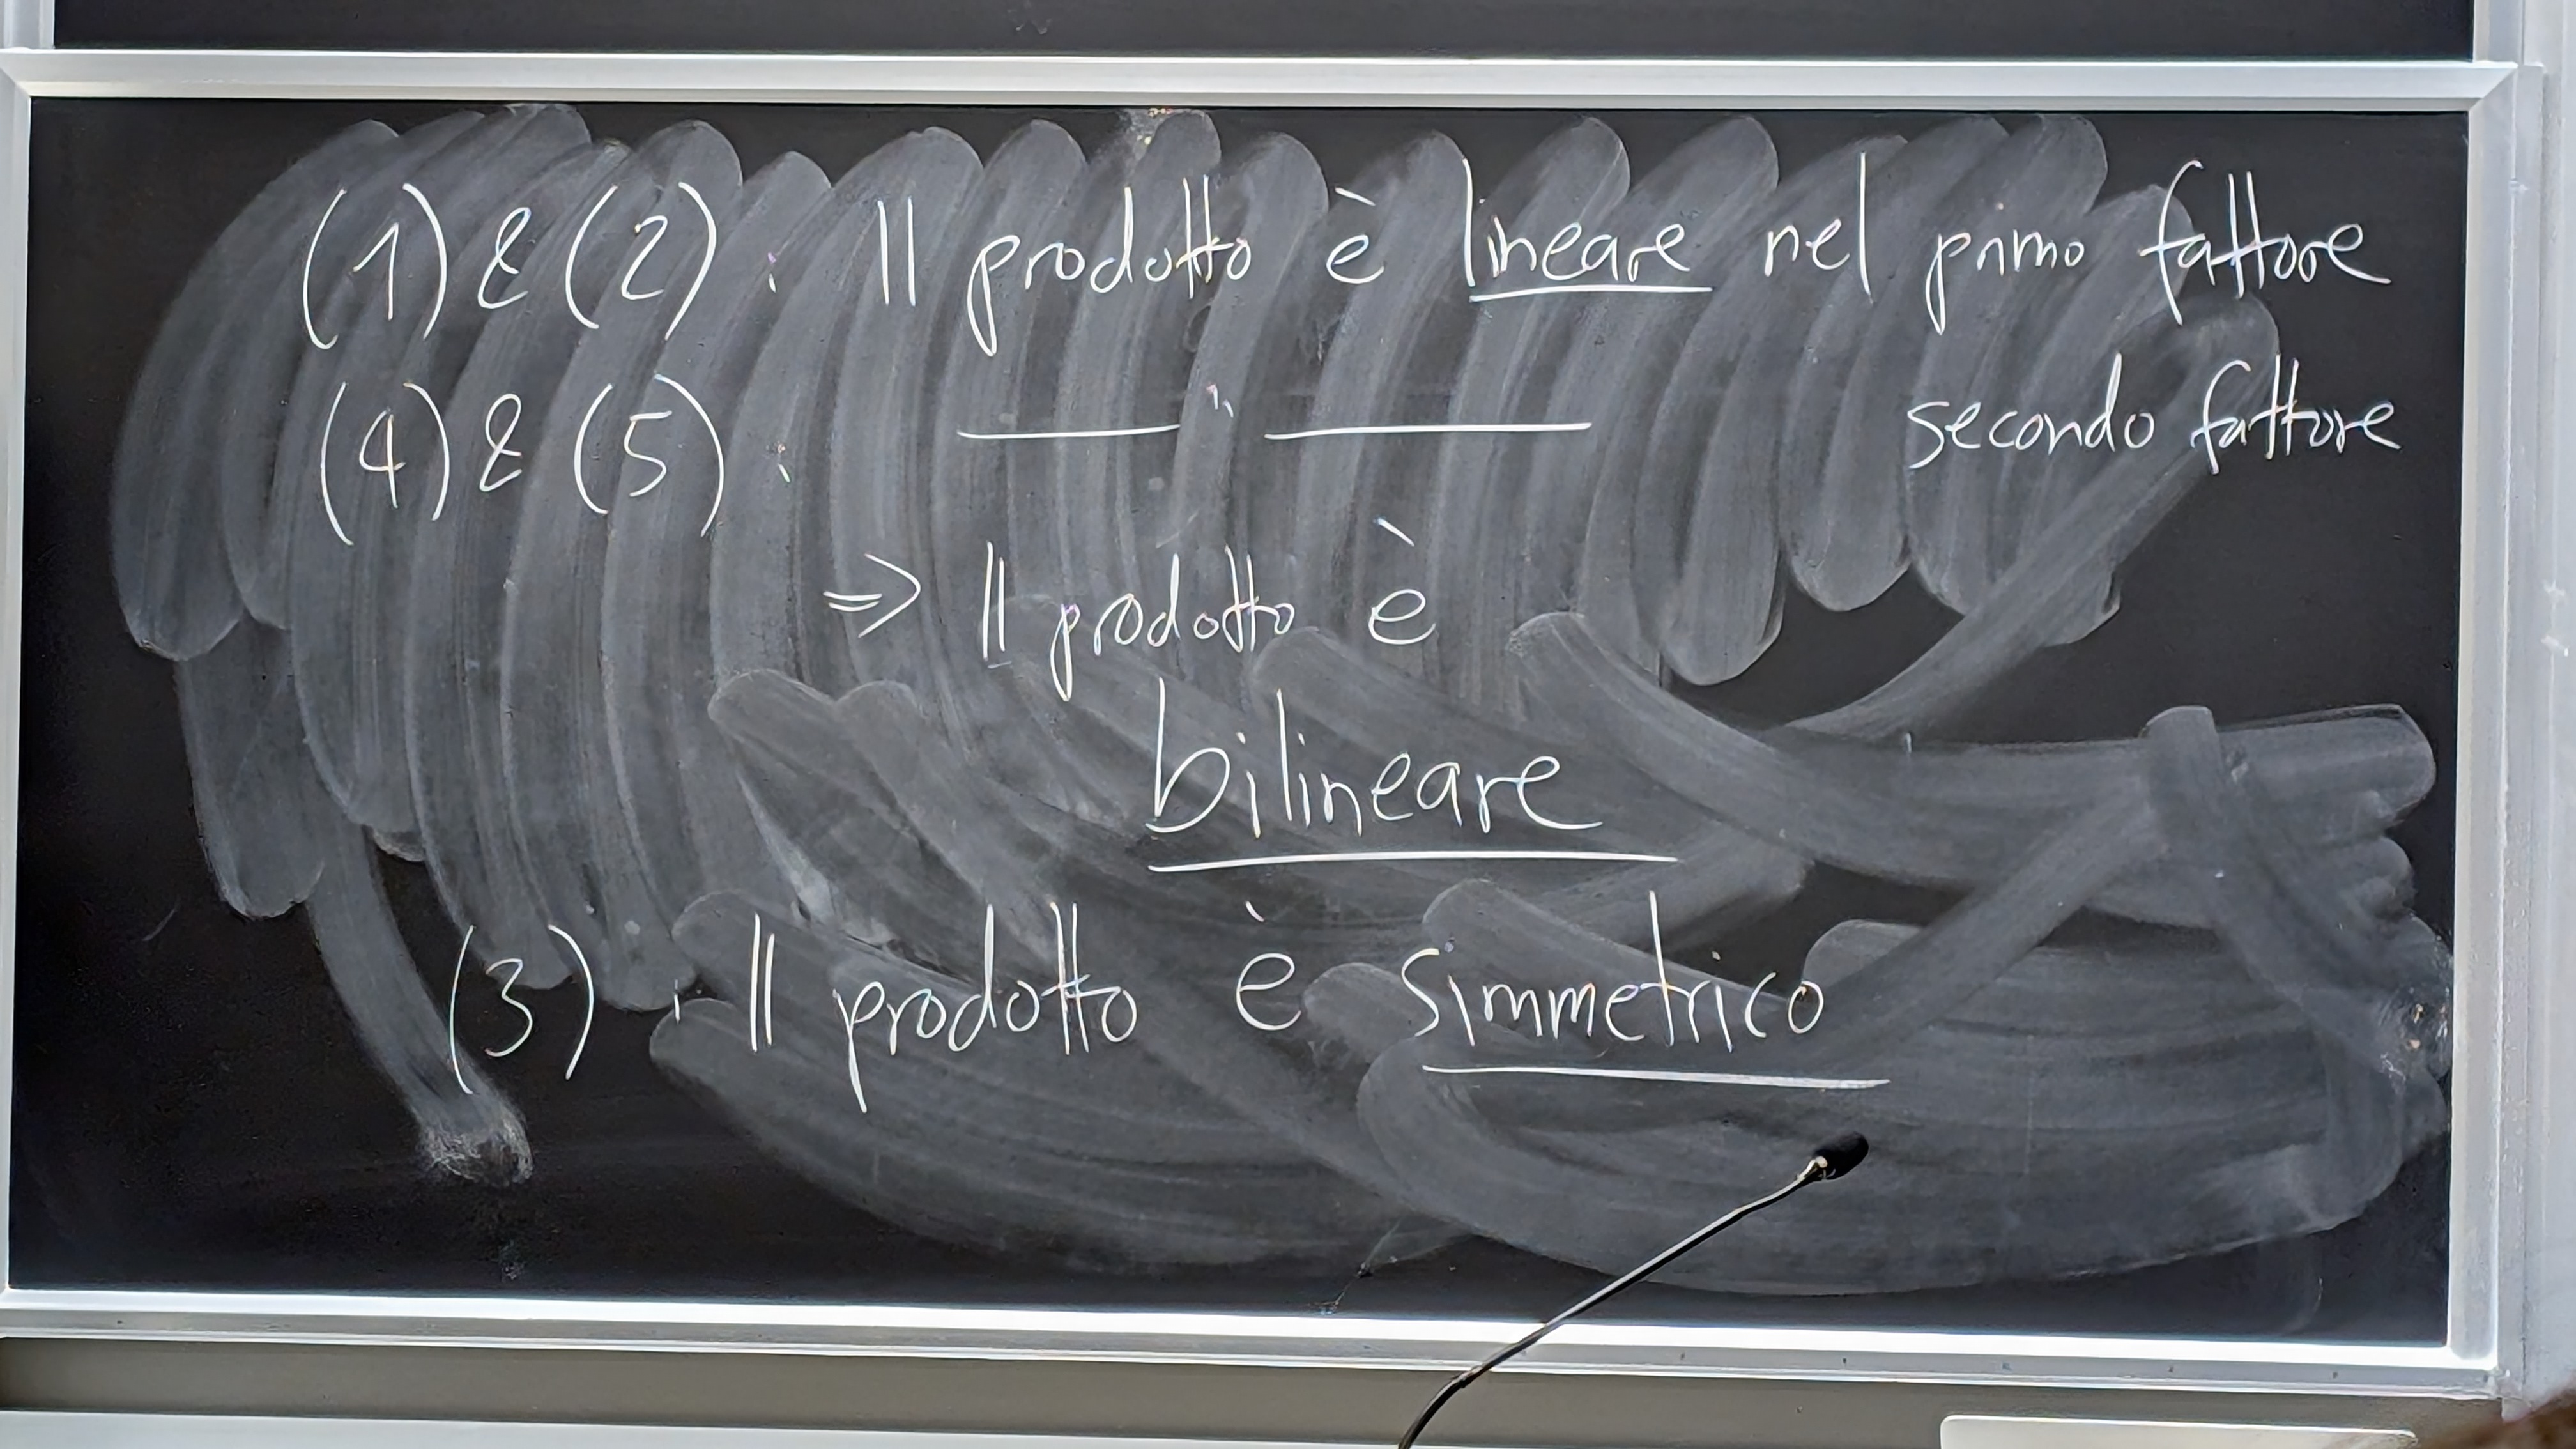 (1) & (2) : Il prodotto è lineare nel primo fattore
(4) & (5) : —— " —— secondo fattore
⇒ Il prodotto è
bilineare
(3) : Il prodotto è simmetrico